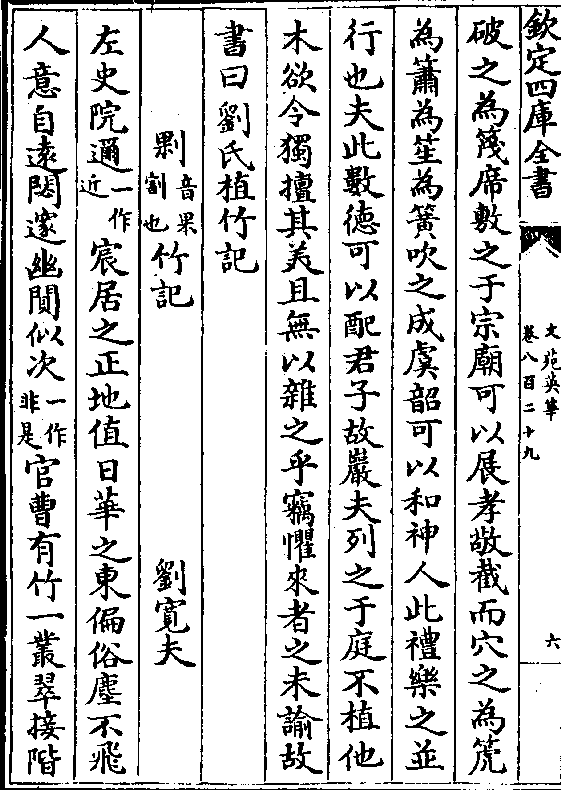 欽定四庫全書
文苑英華
卷八百二十九
六
破之為篾席敷之于宗廟可以展孝敬截而穴之為箎
為簫為笙為簧吹之成虞韶可以和神人此禮樂之並
行也夫此數徳可以配君子故巖夫列之于庭不植他
木欲令獨擅其美且無以雜之乎竊懼來者之未諭故
書曰劉氏植竹記
剿音果割也竹記 劉寛夫
左史院邇一作近宸居之正地值日華之東偏俗塵不飛
人意自遠閎邃幽閴似次一作非是官曹有竹一叢翠接階